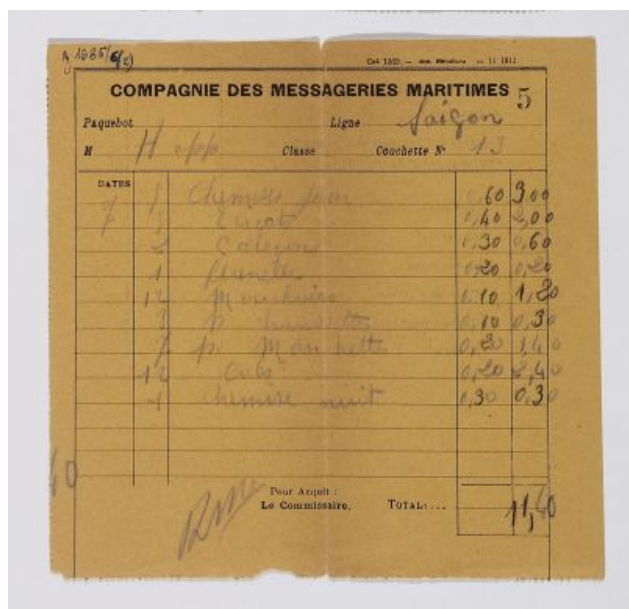 COMPAGNIE DES MESSAGERIES MARITIMES 5
Paquebot Ligne Saigon
M Happ Classe Couchette Nº 13
DATES
7 Chemises jour 0,60 3,00
0,40 2,00
2 Caleçons 0,30 0,60
1 flanelle 0,20 0,20
12 Mouchoirs 0,10 1,20
3 p. chaussettes 0,10 0,30
7 p. Manchettes 0,20 1,40
12 Cols 0,20 2,40
1 chemise nuit 0,30 0,30
Pour Acquit :
Le Commissaire. TOTAL:... 11,40